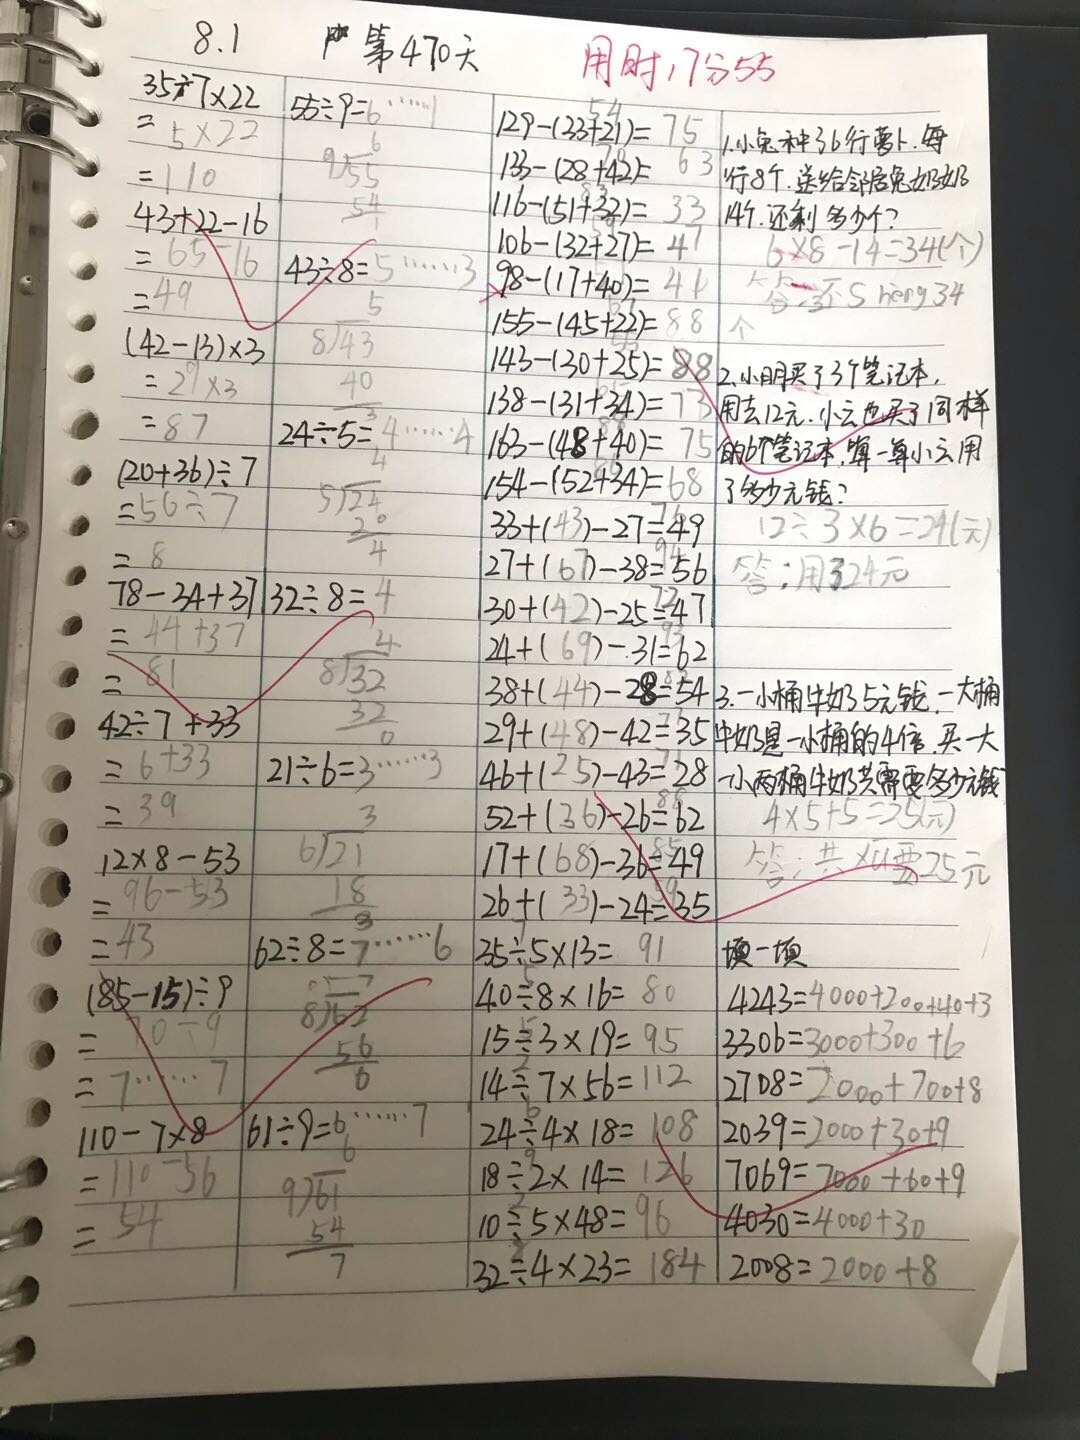 8.1 第470天 用时:7分55
35÷7×22
= 5×22
= 110
43+22-16
= 65-16
= 49
(42-13)×3
= 29×3
= 87
(20+36)÷7
= 56÷7
= 8
78-34+37
= 44+37
= 81
42÷7+33
= 6+33
= 39
12×8-53
= 96-53
= 43
(85-15)÷9
= 70÷9
= 7……7
110-7×8
= 110-56
= 54
55÷9=6……1
6
9)55
54
43÷8=5……3
5
8)43
40
3
24÷5=4……4
4
5)24
20
4
32÷8=4
4
8)32
32
0
21÷6=3……3
3
6)21
18
3
62÷8=7……6
7
8)62
56
6
61÷9=6……7
6
9)61
54
7
54
129-(33+21)= 75
70
133-(28+42)= 63
83
116-(51+32)= 33
59
106-(32+27)= 47
98-(17+40)= 41
67
155-(45+22)= 88
55
143-(30+25)= 88
65
138-(31+34)= 73
88
163-(48+40)= 75
86
154-(52+34)= 68
76
33+(43)-27=49
94
27+(67)-38=56
72
30+(42)-25=47
93
24+(69)-31=62
82
38+(44)-28=54
77
29+(48)-42=35
71
46+(25)-43=28
88
52+(36)-26=62
85
17+(68)-36=49
59
26+(33)-24=35
7
35÷5×13= 91
5
40÷8×16= 80
5
15÷3×19= 95
2
14÷7×56= 112
6
24÷4×18= 108
9
18÷2×14= 126
2
10÷5×48= 96
8
32÷4×23= 184
1.小兔种了6行萝卜.每
行8个.送给邻居兔奶奶
14个.还剩多少个?
6×8-14=34(个)
答:还Sheng34
个
2.小明买了3个笔记本,
用去12元.小云也买了同样
的6个笔记本,算一算小云用
了多少元钱?
12÷3×6=24(元)
答:用了24元
3.一小桶牛奶5元钱,一大桶
牛奶是一小桶的4倍.买一大
一小两桶牛奶共需要多少元钱
4×5+5=25(元)
答:共需要25元
填一填
4243=4000+200+40+3
3306=3000+300+6
2708=2000+700+8
2039=2000+30+9
7069=7000+60+9
4030=4000+30
2008=2000+8